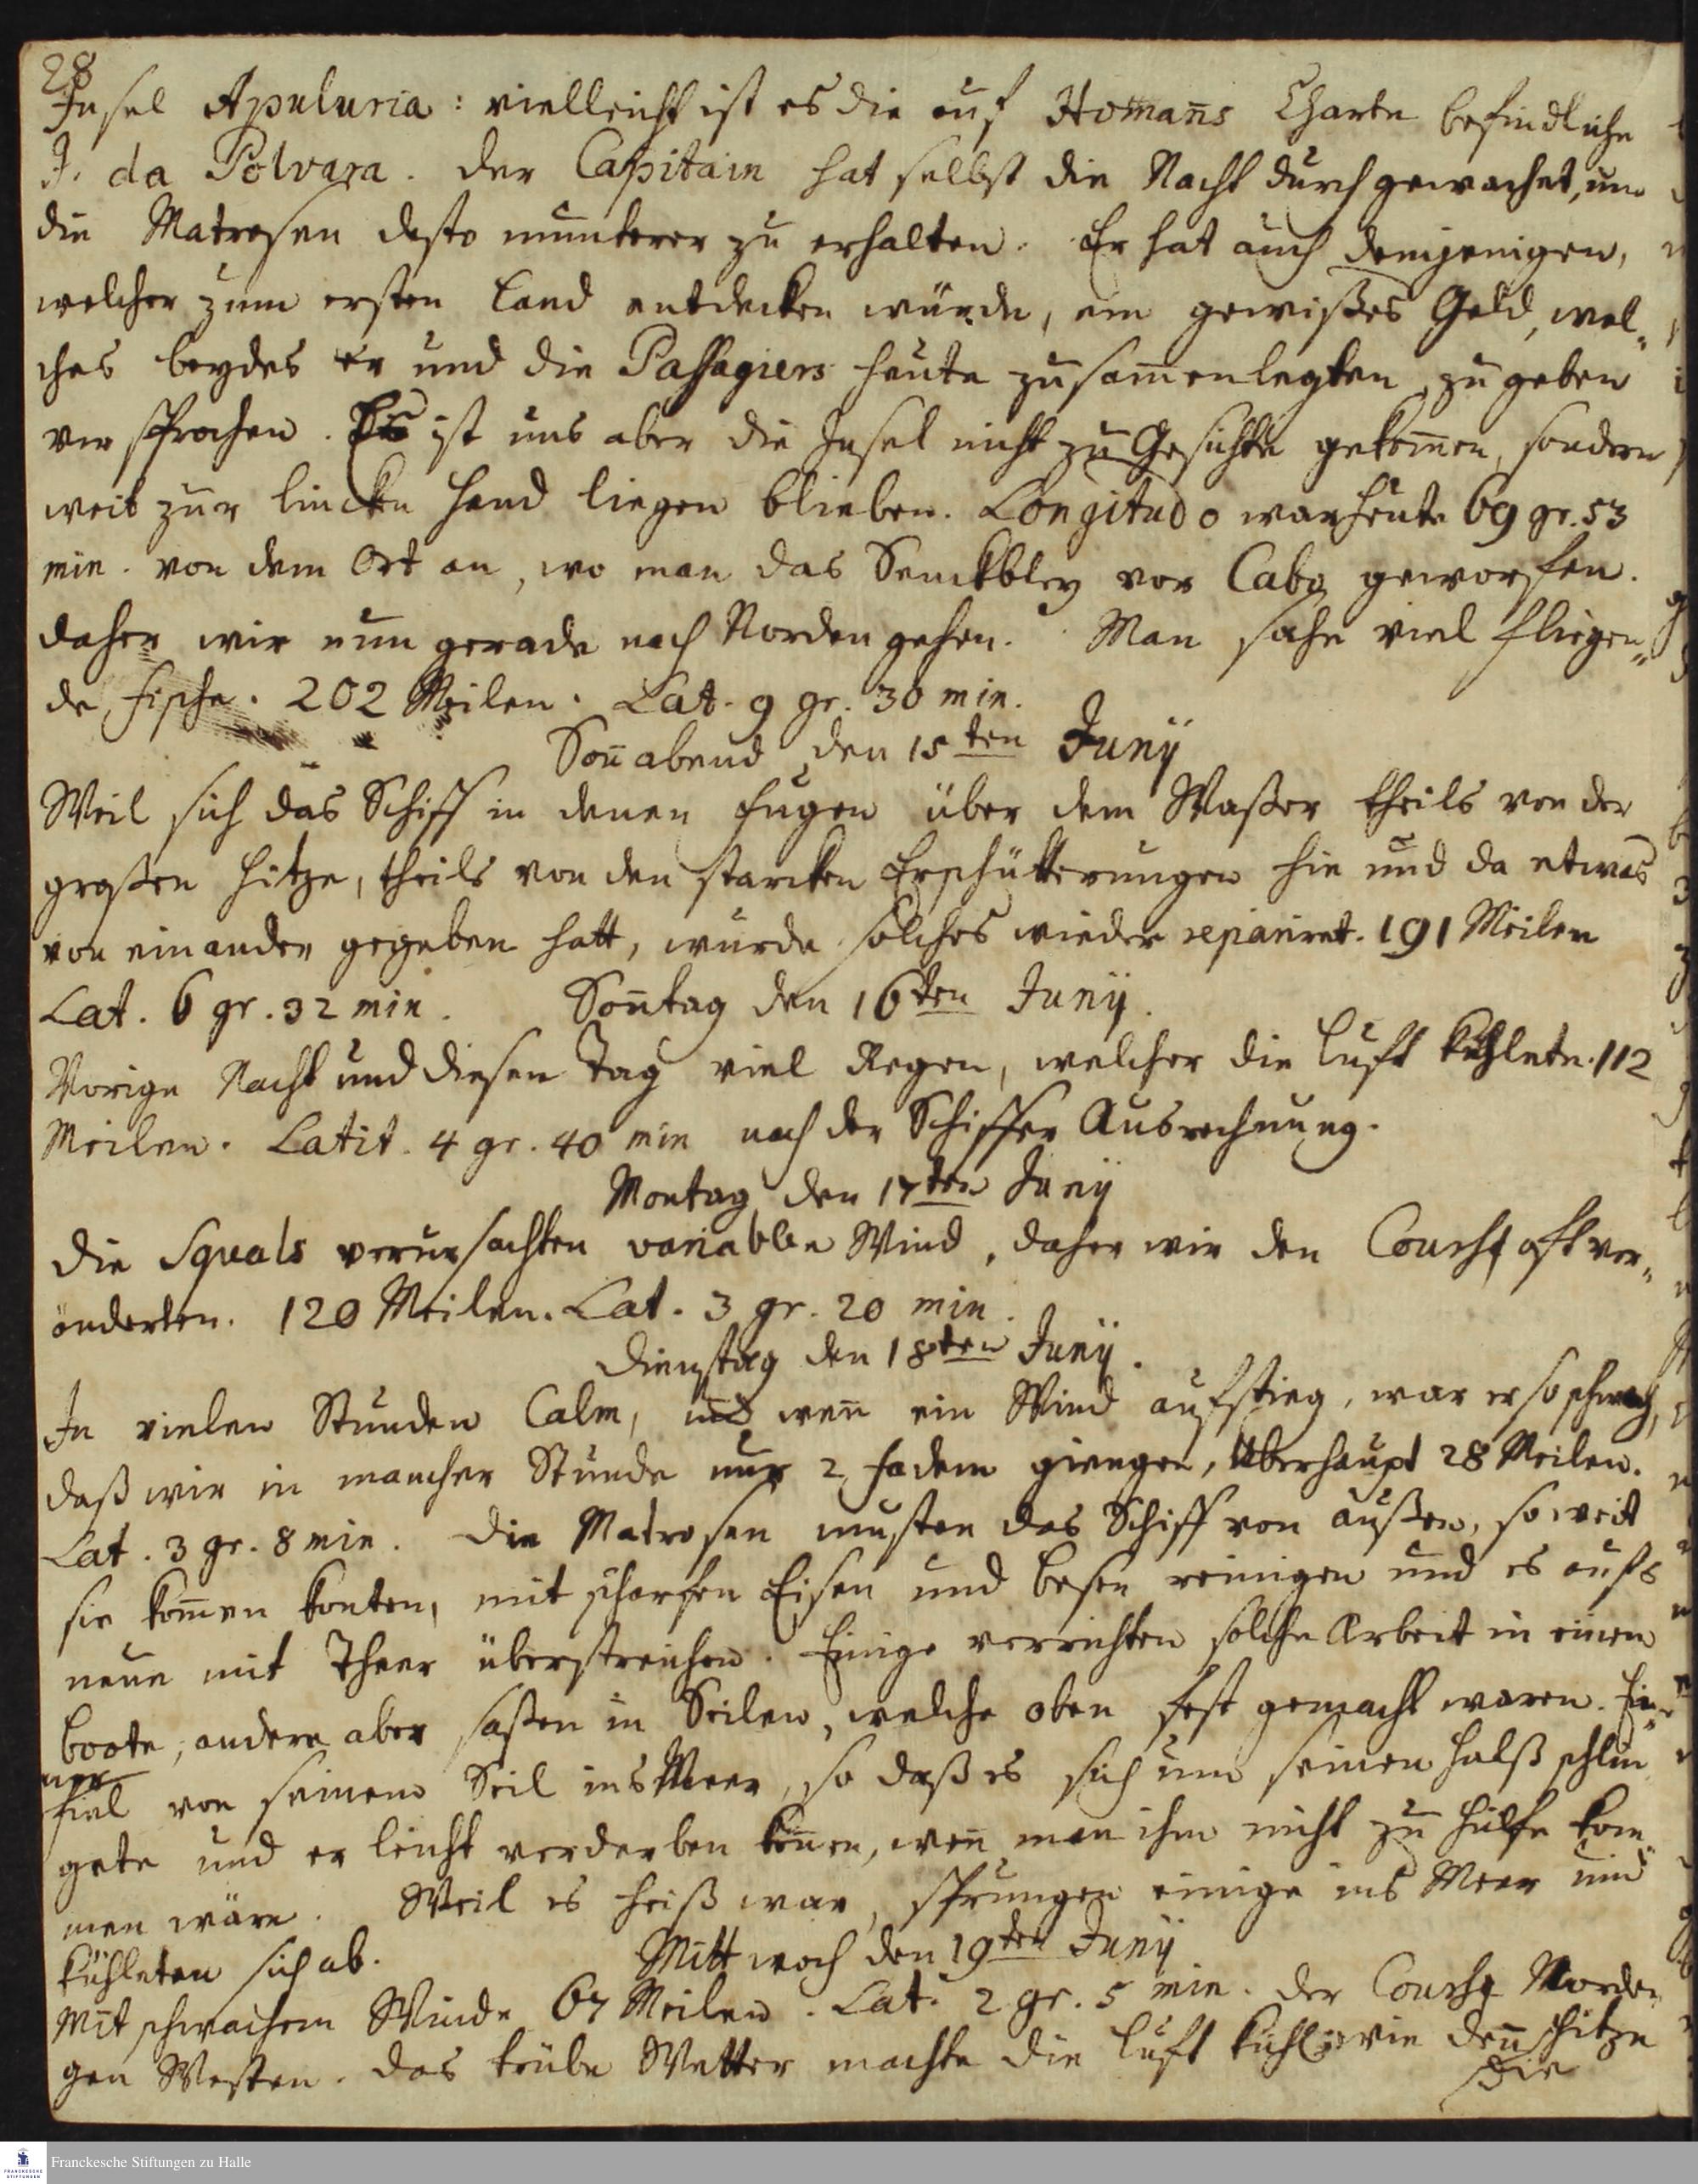 28
Insel Apuluria: vielleicht ist es die auf Homans Charte befindliche
I. da Polvara. Der Capitain hat selbst die Nacht durch gewachet, um
die Matrosen desto munterer zu erhalten. Er hat auch demjenigen,
welcher zum ersten Land entdecken würde, ein gewißes Geld, wel„
ches beydes er und die Passagiers heute zusam̅enlegten, zu geben
versprochen. Es ist uns aber die Insel nicht zu Gesichte gekom̅en, sondern
weit zur lincken Hand liegen blieben. Longitudo war heute 69 gr. 53
min. von dem Ort an, wo man das Senckbley vor Cabo geworfen.
daher wir nun gerade nach Norden gehen. Man sahe viel fliegen„
de Fische. 202 Meilen. Lat. 9 gr. 30 min.
Son̅abend den 15ten Junij
Weil sich das Schiff in denen Fugen über dem Waßer theils von der
großen Hitze, theils von den starcken Erschütterungen hie und da etwas
von einander gegeben hatt, wurde solches wieder repariret. 191 Meilen
Lat. 6 gr. 32 min. Son̅tag den 16ten Junij.
Vorige Nacht und diesen Tag viel Regen, welcher die Luft kühlete. 112
Meilen. Latit. 4 gr. 40 min nach der Schiffer Ausrechnung.
Montag den 17ten Junij
Die Squals verursachten variablen Wind, daher wir den Cours oft ver„
änderten. 120 Meilen. Lat. 3 gr. 20 min.
Dienstag den 18ten Junij.
In vielen Stunden Calm, und wen̅ ein Wind aufstieg, war er so schwach,
daß wir in mancher Stunde nur 2 Fadem giengen, überhaupt 28 Meilen.
Lat. 3 gr. 8 min. Die Matrosen musten das Schiff von außen, so weit
sie kom̅en konten, mit scharfen Eisen und Besen reinigen und es aufs
neue mit Theer überstreichen. Einige verrichten solche Arbeit in einem
Boote, andere aber saßen in Seilen, welche oben fest gemacht waren. Ei„
ner
fiel von seinem Seil ins Meer, so daß es sich um seinen Halß schlin
gete und er leicht verderben kön̅en, wen̅ man ihm nicht zu Hülfe kom„
men wäre. Weil es heiß war, sprungen einige ins Meer und
kühleten sich ab. Mittwoch den 19ten Junij
Mit schwachem Winde 67 Meilen. Lat. 2 gr. 5 min. Der Cours Norden
gen Westen. Das trübe Wetter machte die Luft kühl, wie den̅ Hitze
die
Franckesche Stiftungen zu Halle
FRANCKESCHE STIFTUNGEN